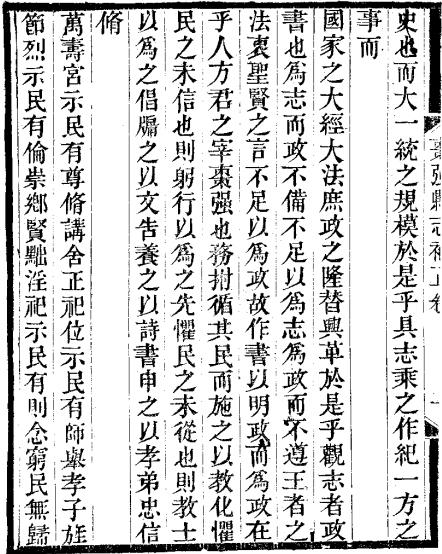 棗强縣志補正卷
一
史也而大一統之規模於是乎具志乘之作紀一方之
事而
國家之大經大法庶政之隆替興革於是乎觀志者政
書也爲志而政不備不足以爲志爲政而不遵王者之
法衷聖賢之言不足以爲政故作書以明政而爲政在
乎人方君之宰棗强也務拊循其民而施之以教化懼
民之未信也則躬行以爲之先懼民之未從也則教士
以爲之倡牖之以文告養之以詩書申之以孝弟忠信
脩
萬壽宮示民有尊脩講舍正祀位示民有師舉孝子旌
節烈示民有倫崇鄉賢黜淫祀示民有則念窮民無歸